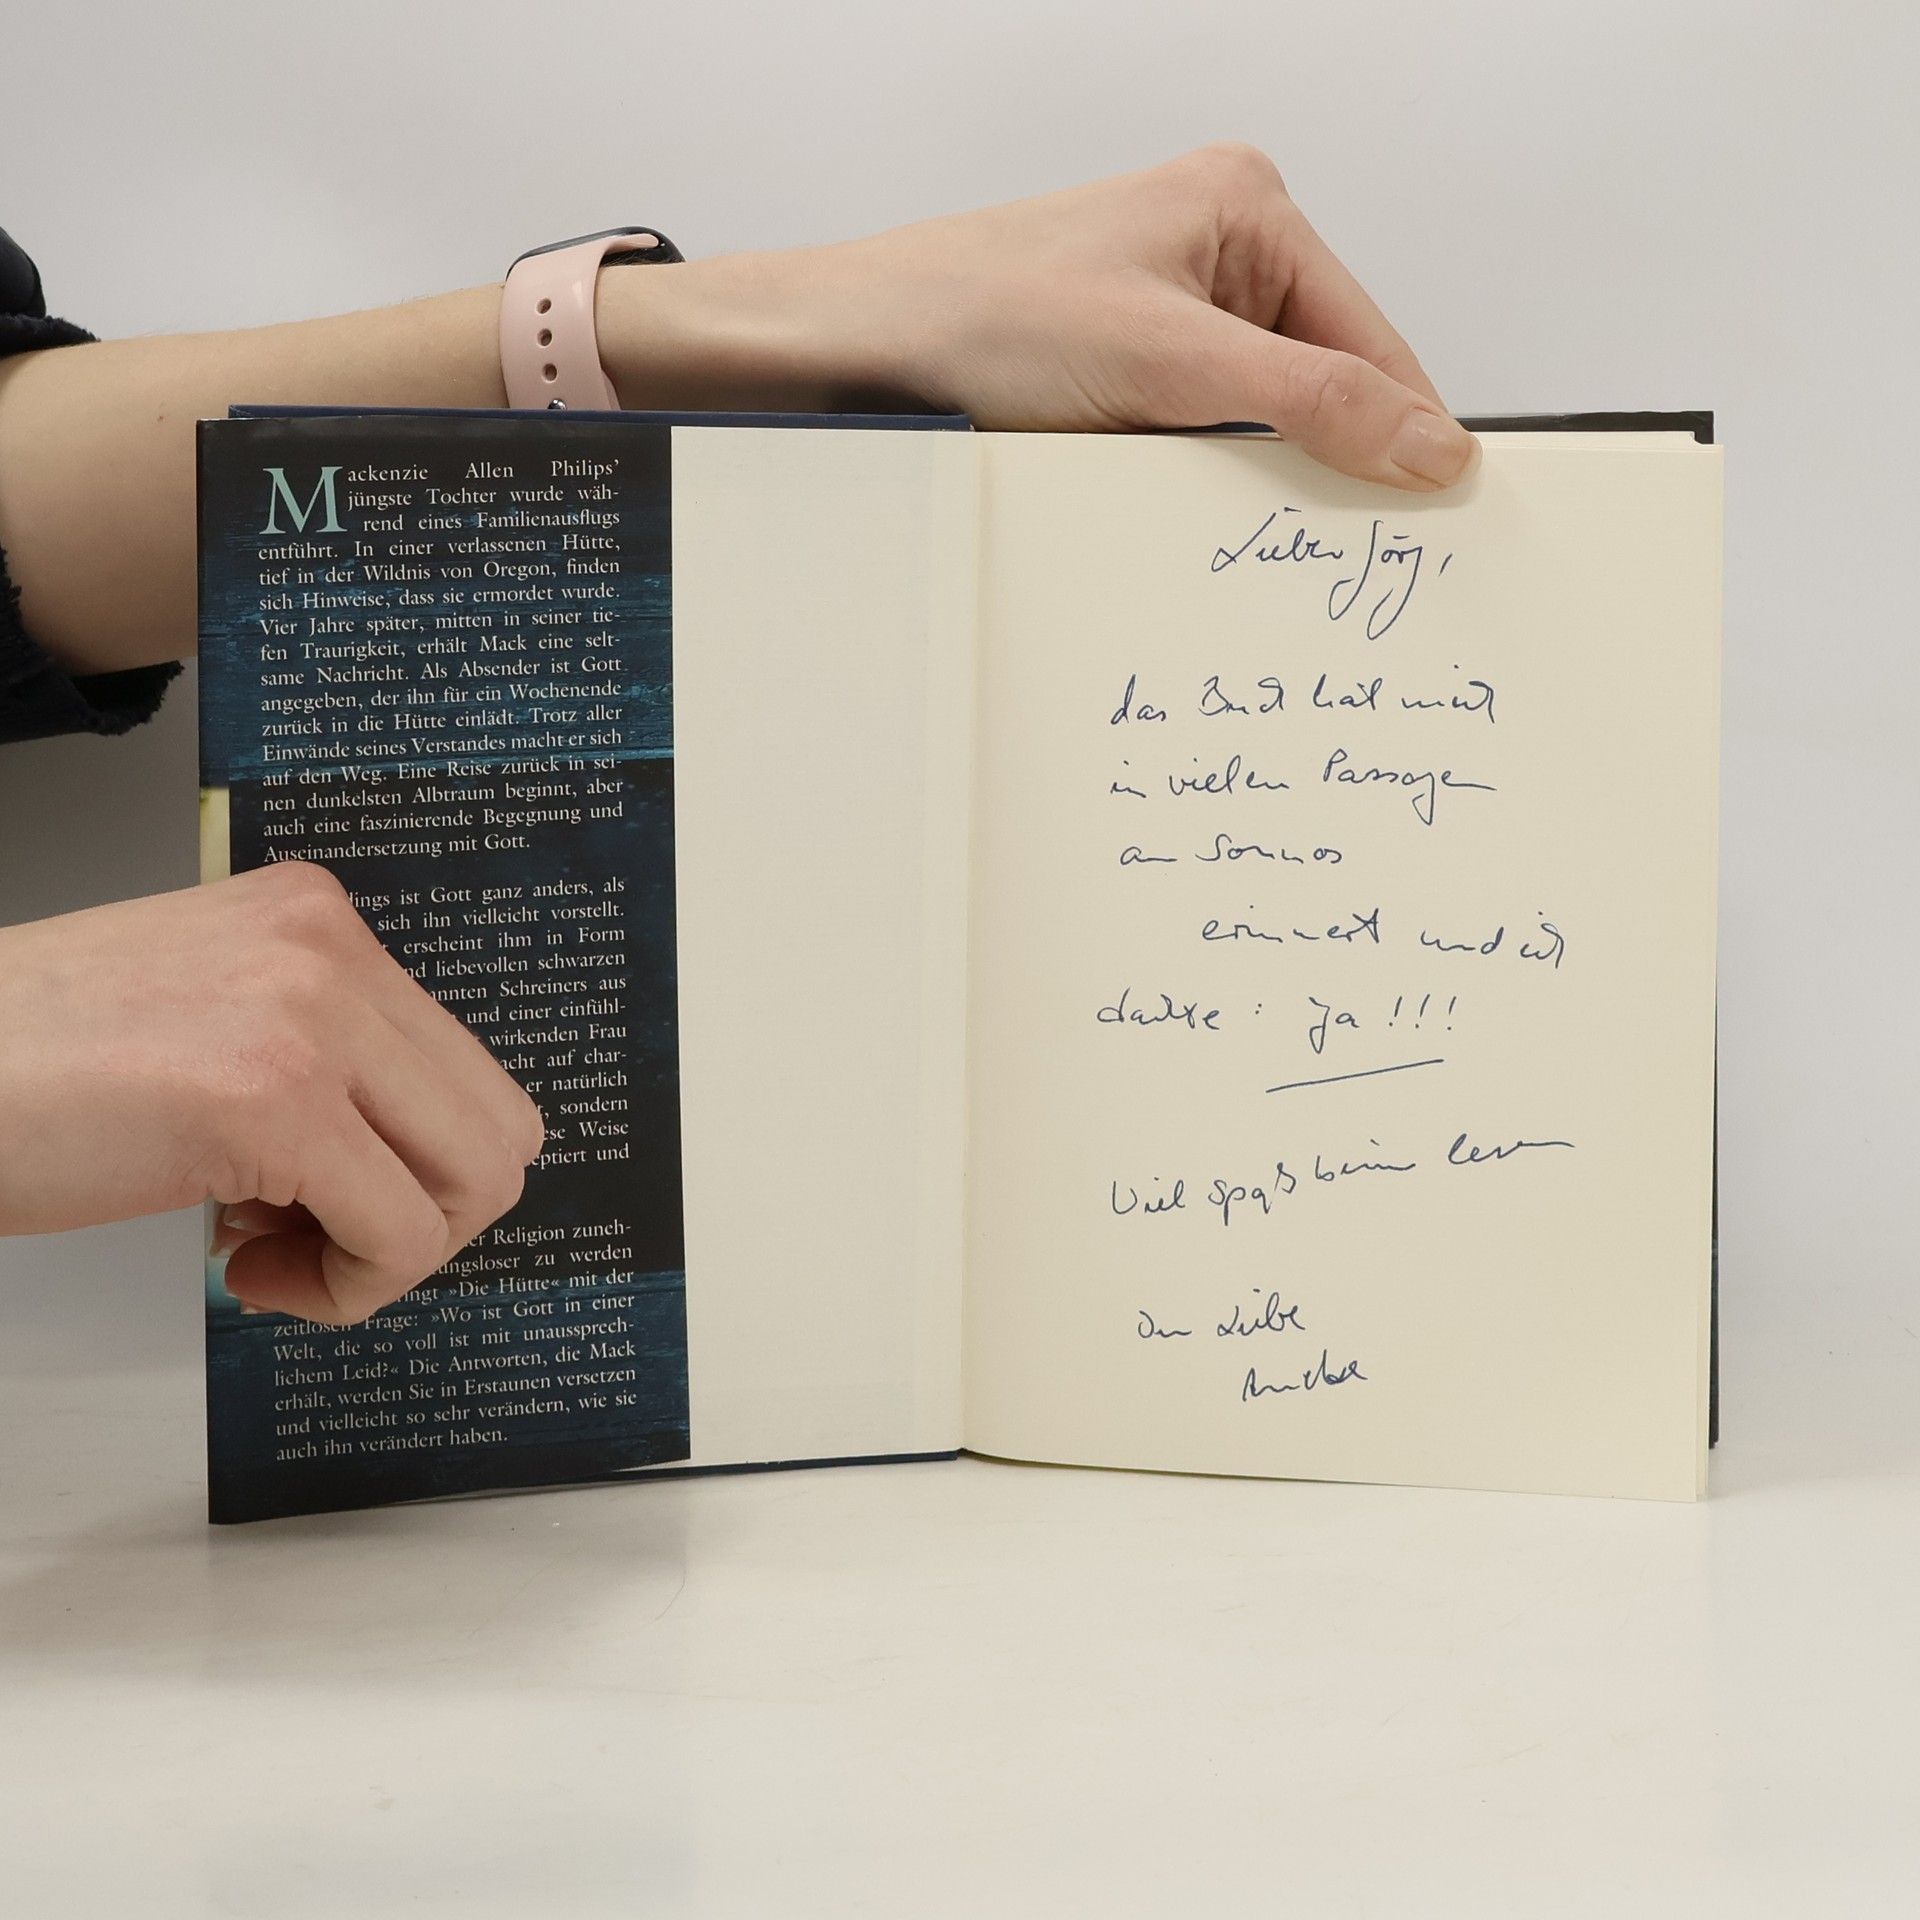 Mackenzie Allen Philips'
jüngste Tochter wurde wäh-
rend eines Familienausflugs
entführt. In einer verlassenen Hütte,
tief in der Wildnis von Oregon, finden
sich Hinweise, dass sie ermordet wurde.
Vier Jahre später, mitten in seiner tie-
fen Traurigkeit, erhält Mack eine selt-
same Nachricht. Als Absender ist Gott
angegeben, der ihn für ein Wochenende
zurück in die Hütte einlädt. Trotz aller
Einwände seines Verstandes macht er sich
auf den Weg. Eine Reise zurück in sei-
nen dunkelsten Albtraum beginnt, aber
auch eine faszinierende Begegnung und
Auseinandersetzung mit Gott.
dings ist Gott ganz anders, als
sich ihn vielleicht vorstellt.
erscheint ihm in Form
nd liebevollen schwarzen
annten Schreiners aus
und einer einfühl-
wirkenden Frau
acht auf char-
er natürlich
sondern
ese Weise
eptiert und
er Religion zuneh-
ungsloser zu werden
ingt »Die Hütte« mit der
zeitlosen Frage: »Wo ist Gott in einer
Welt, die so voll ist mit unaussprech-
lichem Leid?« Die Antworten, die Mack
erhält, werden Sie in Erstaunen versetzen
und vielleicht so sehr verändern, wie sie
auch ihn verändert haben.
Lieber Jörg,
das Buch hat mich
in vielen Passagen
an
erinnert und ich
dachte: Ja!!!
Viel Spaß beim lesen
Liebe